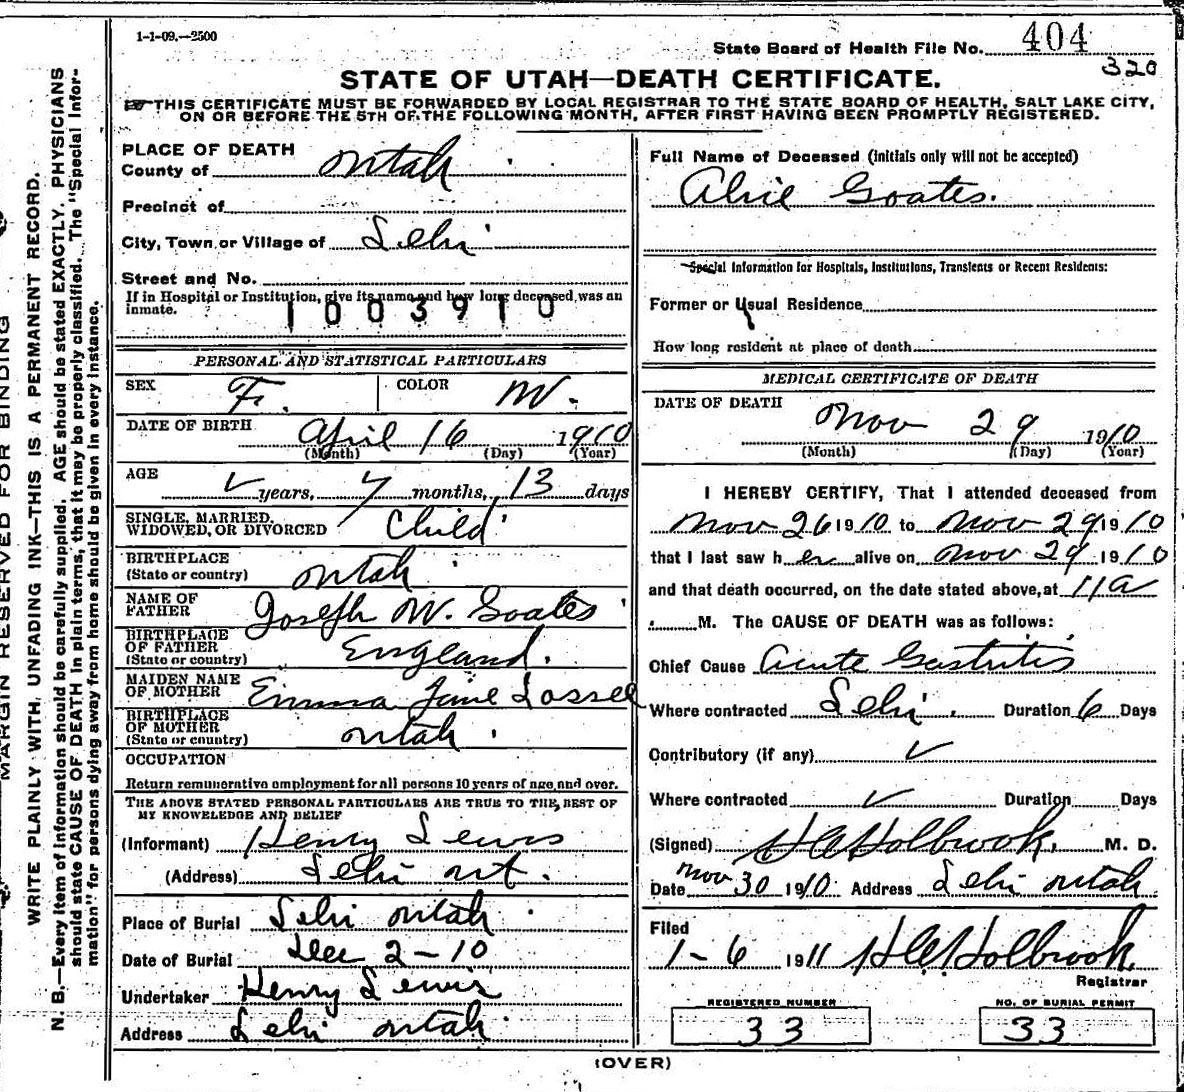 1-1-09.—2500
State Board of Health File No. 404
320
STATE OF UTAH—DEATH CERTIFICATE.
THIS CERTIFICATE MUST BE FORWARDED BY LOCAL REGISTRAR TO THE STATE BOARD OF HEALTH, SALT LAKE CITY,
ON OR BEFORE THE 5TH OF THE FOLLOWING MONTH, AFTER FIRST HAVING BEEN PROMPTLY REGISTERED.
MARGIN RESERVED FOR BINDING
WRITE PLAINLY WITH, UNFADING INK—THIS IS A PERMANENT RECORD.
N. B.—Every item of information should be carefully supplied. AGE should be stated EXACTLY. PHYSICIANS
should state CAUSE OF DEATH in plain terms, that it may be properly classified. The "Special Infor-
mation" for persons dying away from home should be given in every instance.
PLACE OF DEATH
County of Utah
Precinct of
City, Town or Village of Lehi
Street and No.
If in Hospital or Institution, give its name and how long deceased was an
inmate.
1003910
PERSONAL AND STATISTICAL PARTICULARS
SEX F. COLOR W.
DATE OF BIRTH April 16 1910
(Month) (Day) (Year)
AGE
years, 7 months, 13 days
SINGLE, MARRIED,
WIDOWED, OR DIVORCED Child
BIRTHPLACE
(State or country) Utah
NAME OF
FATHER Joseph W. Goates
BIRTHPLACE
OF FATHER
(State or country) England.
MAIDEN NAME
OF MOTHER Emma Jane
BIRTHPLACE
OF MOTHER
(State or country) Utah.
OCCUPATION
Return remunerative employment for all persons 10 years of age and over.
THE ABOVE STATED PERSONAL PARTICULARS ARE TRUE TO THE BEST OF
MY KNOWELEDGE AND BELIEF
(Informant) Henry Lewis
(Address) Lehi Ut.
Place of Burial Lehi Utah
Date of Burial Dec 2-10
Undertaker Henry Lewis
Address Lehi Utah
Full Name of Deceased (initials only will not be accepted)
Goates.
Special Information for Hospitals, Institutions, Transients or Recent Residents:
Former or Usual Residence
How long resident at place of death
MEDICAL CERTIFICATE OF DEATH
DATE OF DEATH
Nov 29 1910
(Month) (Day) (Year)
I HEREBY CERTIFY, That I attended deceased from
Nov 26 1910 to Nov 29 1910
that I last saw her alive on Nov 29 1910
and that death occurred, on the date stated above, at 11 a
M. The CAUSE OF DEATH was as follows:
Chief Cause Acute Gastritis
Where contracted Lehi. Duration 6 Days
Contributory (if any)
Where contracted Duration Days
(Signed) Holbrook. M. D.
Date Nov 30 1910 Address Lehi Utah
Filed
1-6 1911 Holbrook
Registrar
REGISTERED NUMBER
33
NO. OF BURIAL PERMIT
33
(OVER)